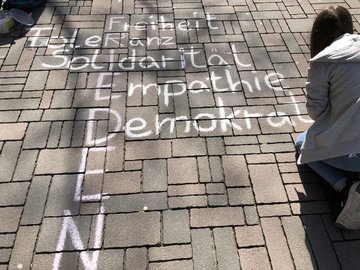 Freiheit
ToleRanz
SolIdarität
Empathie
Demokrat
E
N